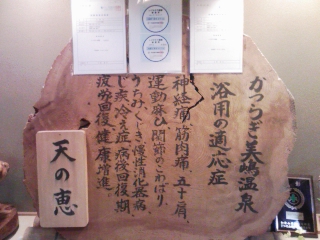 かつらぎ美嶋温泉
浴用の適応症
神経痛・筋肉痛、五十肩、
運動麻ひ、関節のこわばり、
うちみ、くじき、慢性消化器病、
じ疾、冷え症、病後回復期、
疲労回復、健康増進、
天の恵